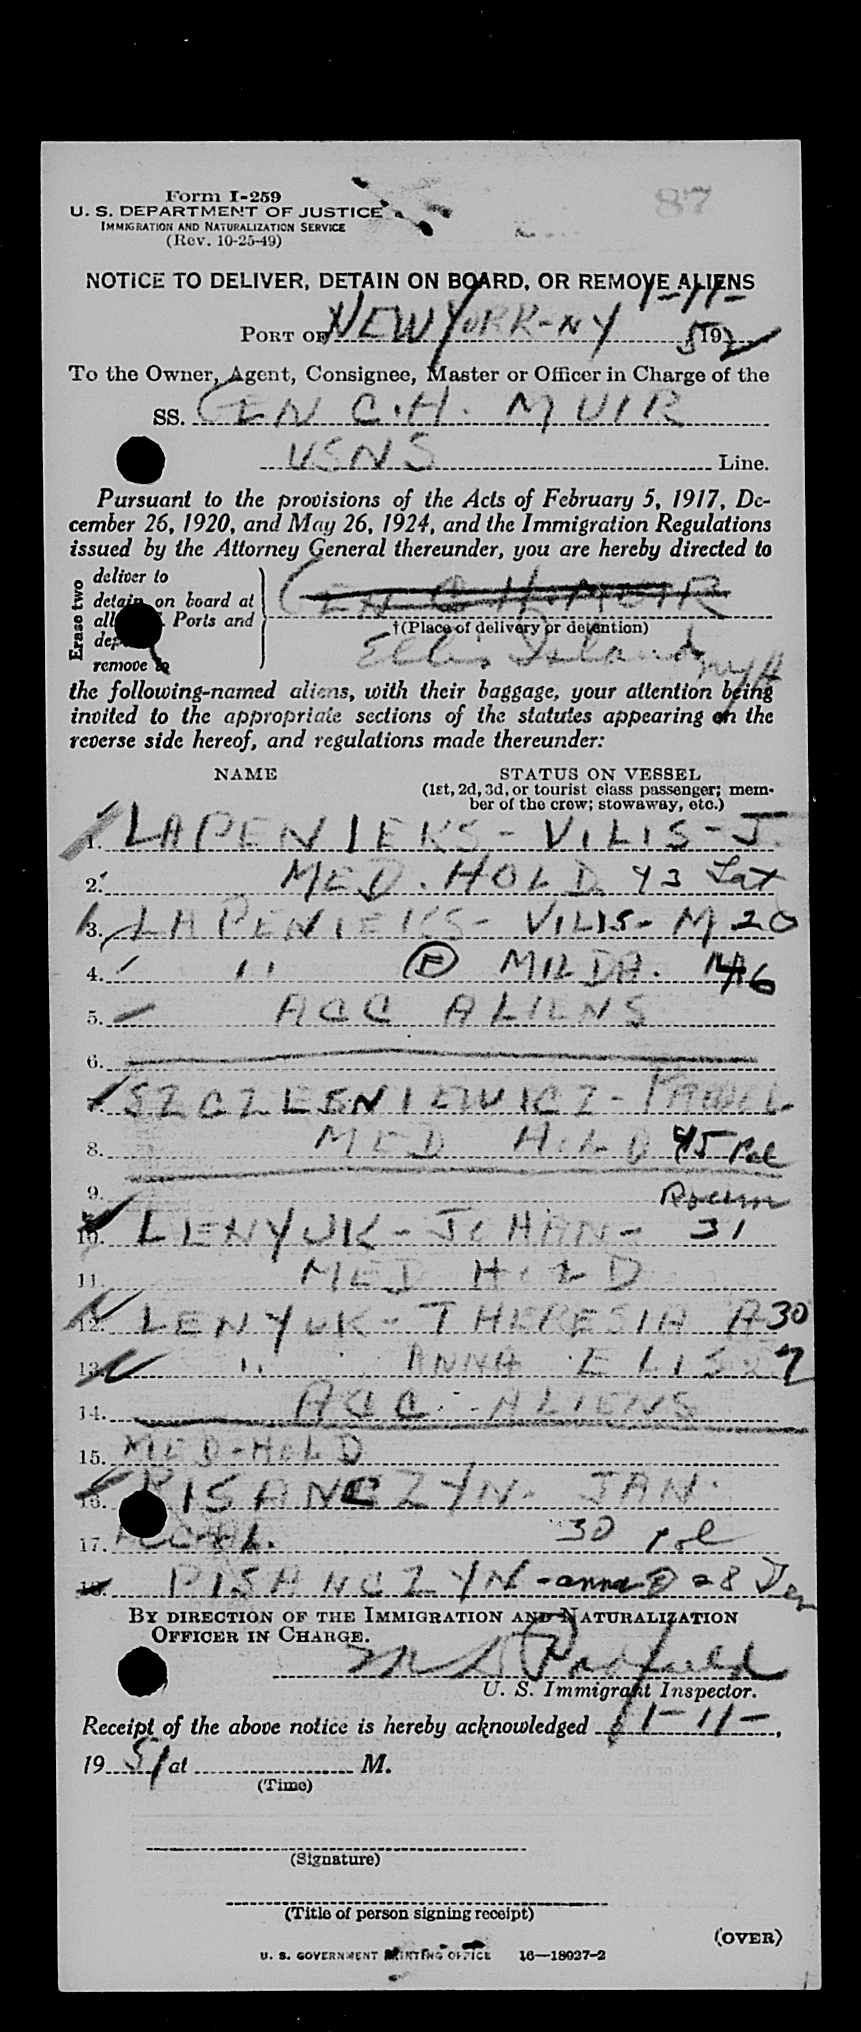 87
Form I-259
U. S. DEPARTMENT OF JUSTICE
IMMIGRATION AND NATURALIZATION SERVICE
(Rev. 10-25-49)
NOTICE TO DELIVER, DETAIN ON BOARD, OR REMOVE ALIENS
1-11-
PORT OF NEW YORK-NY 5192
To the Owner, Agent, Consignee, Master or Officer in Charge of the
SS. GEN C.H. MUIR
USNS Line.
Pursuant to the provisions of the Acts of February 5, 1917, De-
cember 26, 1920, and May 26, 1924, and the Immigration Regulations
issued by the Attorney General thereunder, you are hereby directed to
Erase two
deliver to
detain on board at
all Ports and
remove to
GEN C H MUIR
†(Place of delivery or detention)
Ellis Island NYH
the following-named aliens, with their baggage, your attention being
invited to the appropriate sections of the statutes appearing on the
reverse side hereof, and regulations made thereunder:
NAME STATUS ON VESSEL
(1st, 2d, 3d, or tourist class passenger; mem-
ber of the crew; stowaway, etc.)
1. LAPENIEKS - VILIS - J.
2. MED. HOLD 43 Lat
3. LAPENIEKS - VILIS - M 20
4. " E MILDA. 46
5. ACC ALIENS
6.
7. SZCZESNIEWICZ - PAWEL
8. MED HOLD 45 Pol
9. Roum
10. LENYUK - JOHAN - 31
11. MED HOLD
12. LENYUK - THERESIA A 30
13. " ANNA ELIS 7
14. ACC ALIENS
15. MED-HOLD
16. PISANCZYN - JAN.
17. ACC-AL. 30 pol
18. PISANCZYN - anna D 28 Ger
BY DIRECTION OF THE IMMIGRATION AND NATURALIZATION
OFFICER IN CHARGE.
U. S. Immigrant Inspector.
Receipt of the above notice is hereby acknowledged 1-11-,
19 51 at M.
(Time)
(Signature)
(Title of person signing receipt)
(OVER)
U. S. GOVERNMENT PRINTING OFFICE 16—18027-2